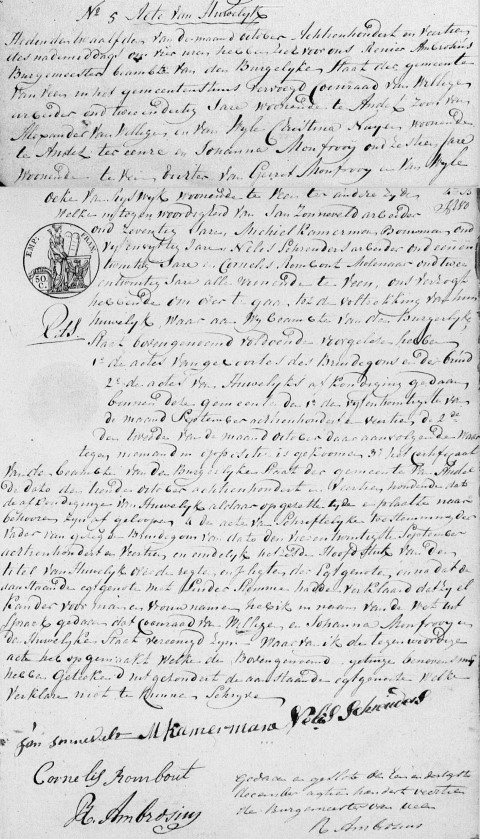 No 5 Acte van Huwelijk
Heden den twaalfden van de maand october Achtienhonderd en Veertien
des nademiddags om vier uren hebben zich voor ons Renier Ambrosius
Burgemeester beambte van den Burgelyke Staat der gemeente
van Veen in het gemeentenhuis Vervoegd Coenraad van Willige
arbeider oud twee en dertig Jare woonende te Andel Zoon van
Alexander van Willegen en van Wyle Cristina Nuyen woonende
te Andel ter eenre en Johanna Monfrooy oud Jare
Woonende te Veen, dogter van Gerrit Monfrooy en Van Wyle
van Lyswyk woonende te Veen ter andere zyde
Welke in tegenwoordigheid van Jan Zonneveld arbeider
oud Zeventig Jare, Michiel Kamerman Bouwman oud
vyf en vyftig Jare Nelis Schreuders arbeider oud een en
twintig Jare en Cornelis Rombout Molenaar oud twee
en twintig Jare alle woonende te Veen, ons verzogt
hebbende om over te gaan tot de voltrekking van hun
huwelyk, Waar aan wy beambte van de Burgerlyke
Staat bovengenoemd voldoende voorgelezen hebbe
1e de actes van geboortes des Bruidegoms en de bruid
2e de actes van Huwelyks afkondeging gedaan
binnen deze gemeente de 1e den vyfentwintigste van
de maand September achtienhonderd en veertien, de 2de
den tweede van de maand october daar aanvolgende Waar
tegen niemand in oppositie is gekoomen 3e het certificaat
van de beambte van de Burgelyke Staat der gemeente van Andel
De dato den tiende october achtienhonderd en Veertien houdende dat
de afkondiginge van Huwelyk aldaar op gezette tyde en plaatse naar
behooren zyn afgeloopen 4 de acte van Schriftelyke toestemming der
Vader van gezegde Bruidegom van dato den vierentwintigste September
achtienhonderd en Veertien, en eindelyk het zesde Hoofdstuk van den
titel van Huwelyk over de regte en plegten der Egtgenote, en na dat de
aanstaande egtgenote met luider Stemme hadde Verklaard dat zy el
kander voor man en vrouw name heb ik in naam van de Wet uit
spraak gedaan dat Coenraad van Willige en Johanna Monfrooy en
de Huwelyke Staat vereenigd zyn. Waar van ik de tegenwoordige
acte heb opgemaakt Welke de Bovengenoemd getuige benevens my
hebbe Getekend uitgezonderd de aanstaande egtgenote Welke
Verklare niet te kunnen Schryve
Jan sonnevelt M Kamermans Nelis Schreuders
Cornelis Rombout
R. Ambrosius
EMP. FRAN.
50 C.
Gedaan en geslote de een en dertigste
december agtien honderd veertien
de Burgemeester van veen
R Ambrosius